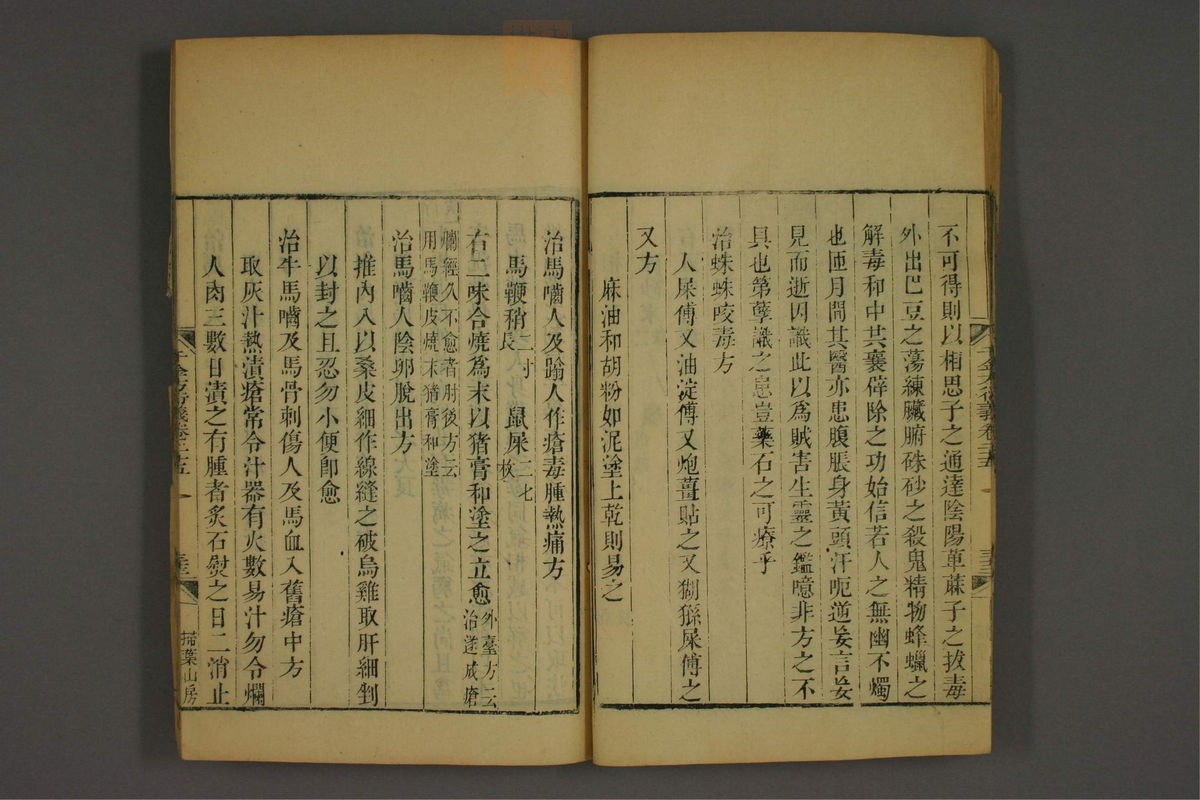 不可得則以相思子之通達陰陽萆蔴子之拔毒
外出巴豆之蕩練臟腑硃砂之殺鬼精物蜂蠟之
解毒和中其襄倅除之功始信若人之無幽不燭
也匝月間其醫亦患腹脹身黃頭汗呃逆妄言妄
見而逝因識此以爲賊害生靈之鑑噫非方之不
具也第孽讖之患豈藥石之可療乎
治蛛蛛咬毒方
人屎傅又油淀傅又炮薑貼之又猢猻屎傅之
又方
麻油和胡粉如泥塗上乾則易之
治馬嚙人及蹹人作瘡毒腫熱痛方
馬鞭稍二寸長 鼠屎二七枚
右二味合燒爲末以猪膏和塗之立愈外臺方云治遂成瘡
爛經久不愈者肘後方云用馬鞭皮燒末猪膏和塗
治馬嚙人陰卵脫出方
推內入以桑皮細作線縫之破烏雞取肝細剉
以封之且忍勿小便卽愈
治牛馬嚙及馬骨刺傷人及馬血入舊瘡中方
取灰汁熱漬瘡常令汁器有火數易汁勿令爛
人肉三數日漬之有腫者炙石熨之日二消止
掃葉山房